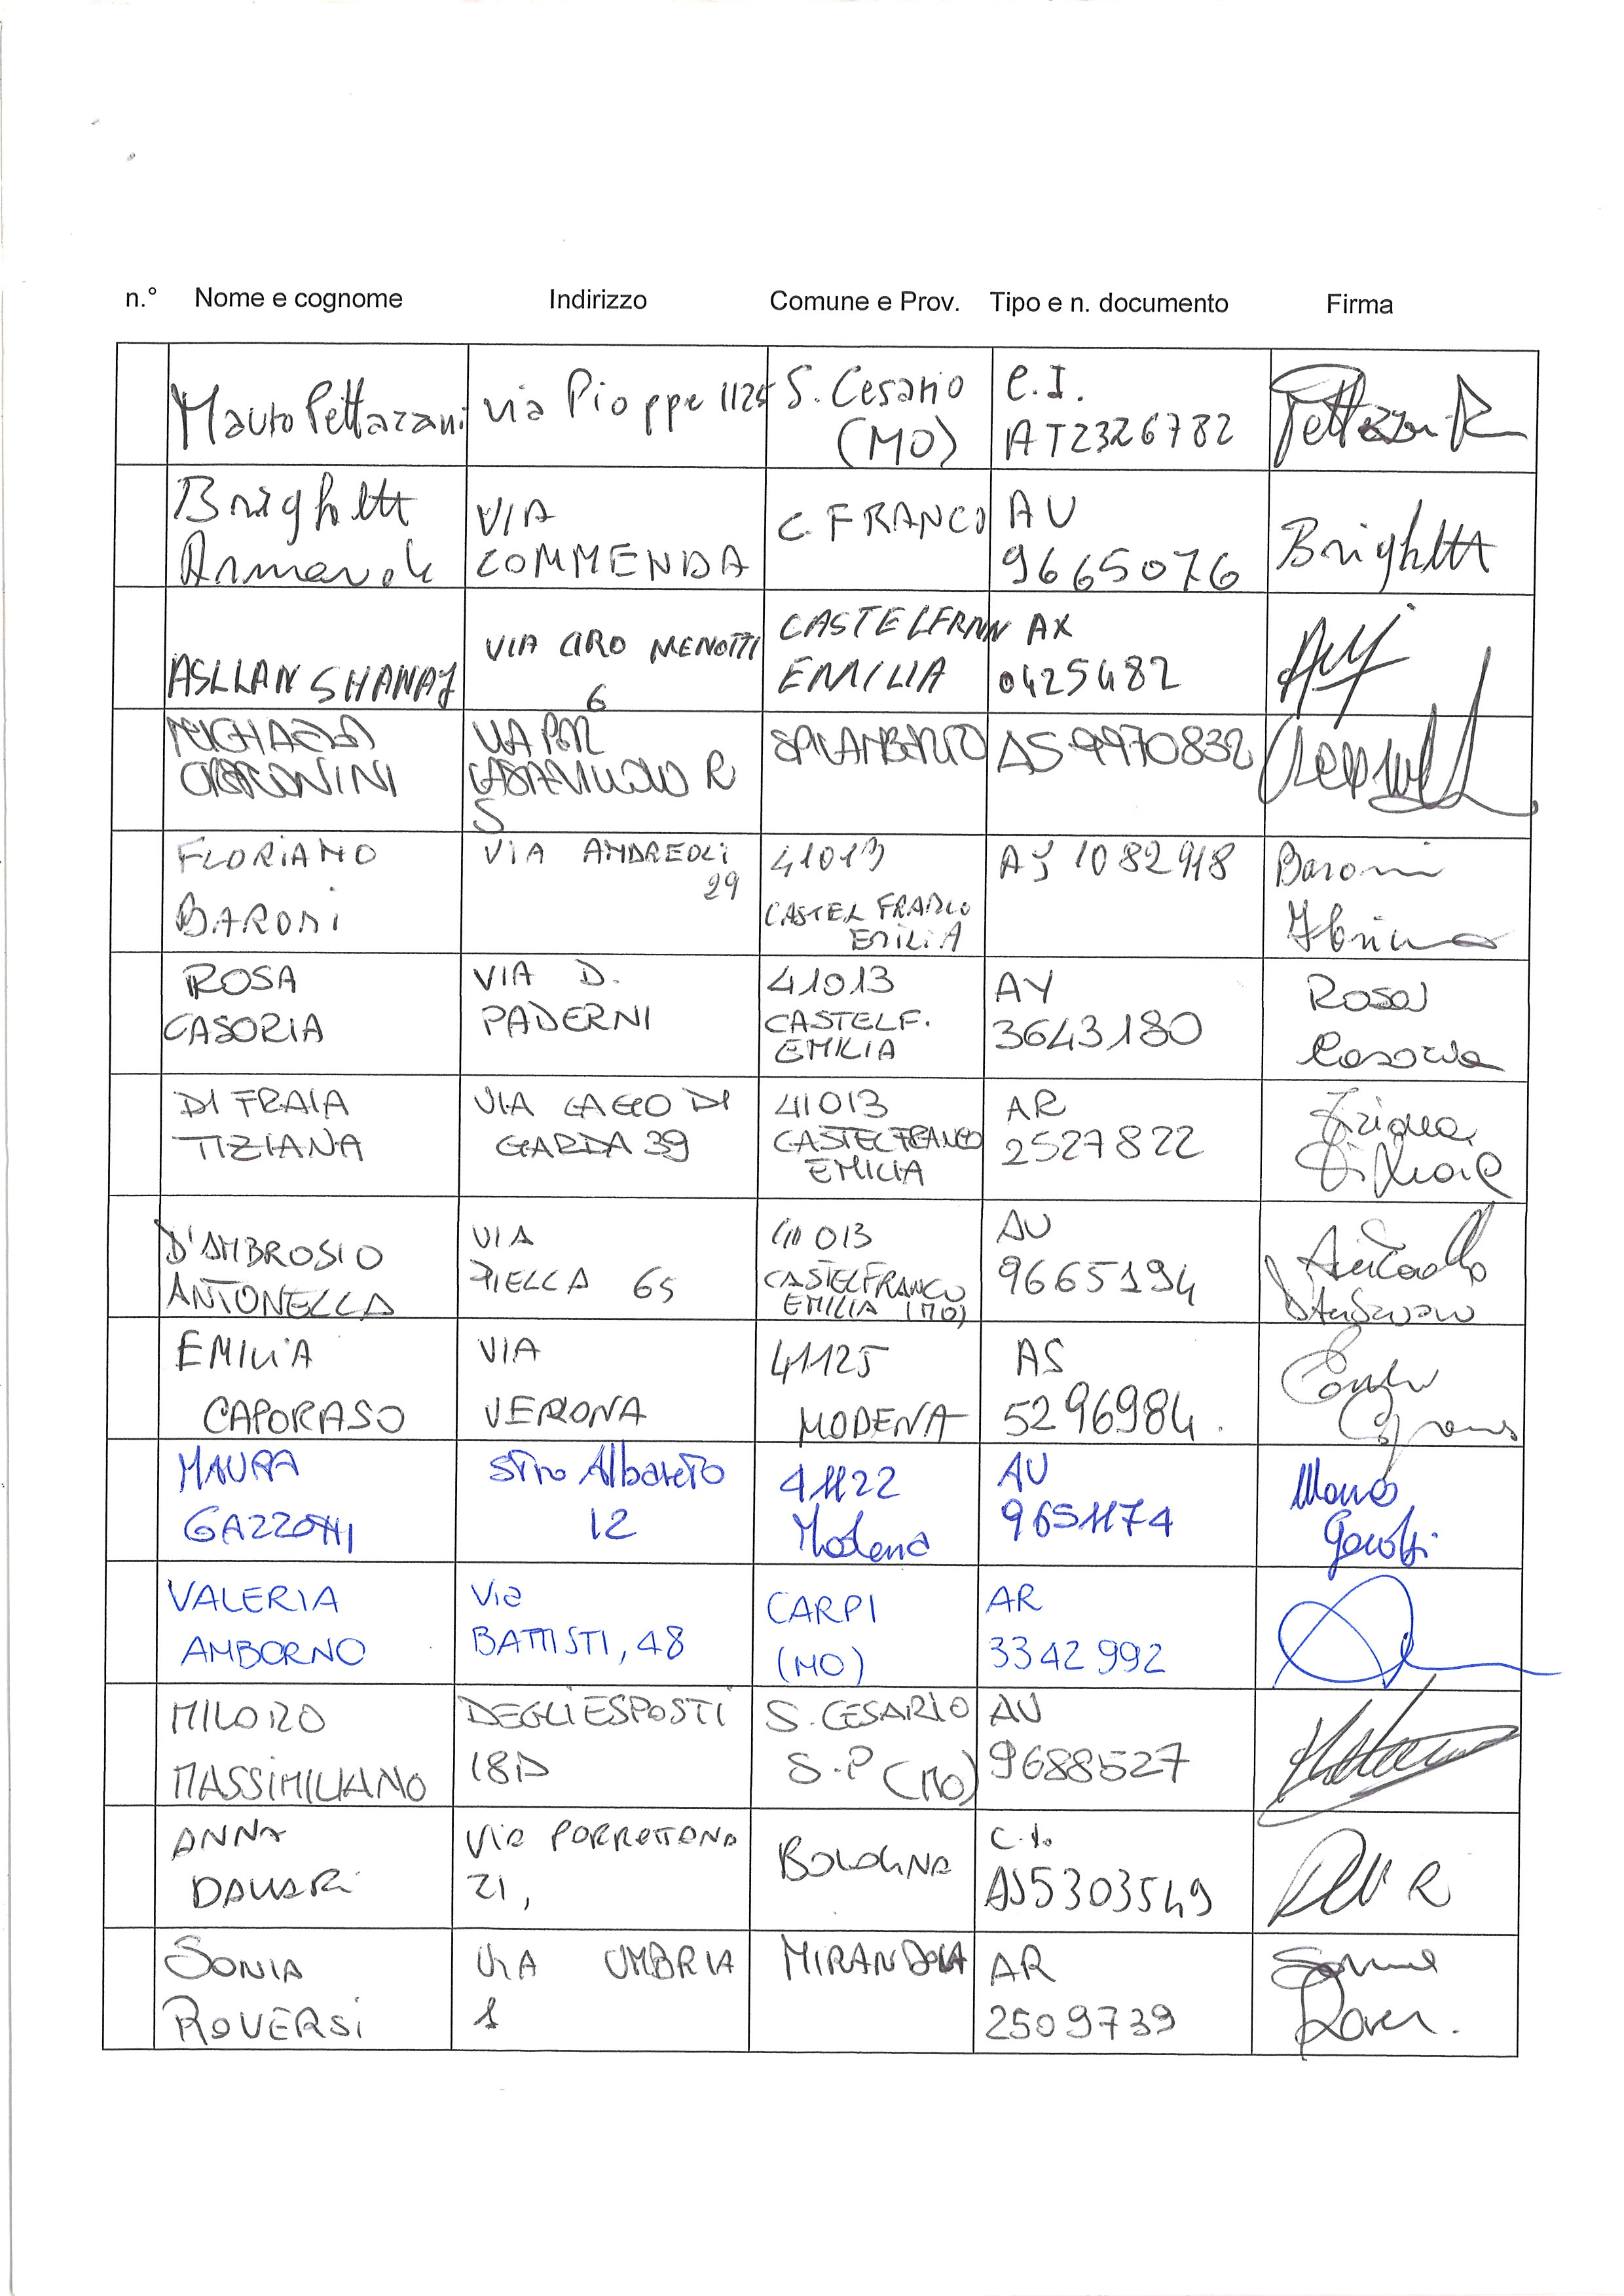 n.° Nome e cognome Indirizzo Comune e Prov. Tipo e n. documento Firma
Mauro Pettazzani via Pioppe 1125 S. Cesario C.I.
(MO) AT2326782
Brighetti VIA C. FRANCO AU Brighetti
COMMENDA 9665076
ASLLAN SHANAJ VIA CIRO MENOTTI CASTELFRAN AX
6 EMILIA 0425482
VIA PER AS 9970832
S
FLORIANO VIA ANDREOLI 41013 AJ 1082918 Baroni
BARONI 29 CASTEL FRANCO
EMILIA
ROSA VIA D. 41013 AY Rosa
CASORIA PADERNI CASTELF. 3643180 Casoria
EMILIA
DI FRAIA VIA LAGO DI 41013 AR Tiziana
TIZIANA GARDA 39 CASTELFRANCO 2527822
EMILIA
D'AMBROSIO VIA 41013 AU
ANTONELLA PIELLA 65 CASTELFRANCO 9665194
EMILIA (MO)
EMILIA VIA 41125 AS
CAPORASO VERONA MODENA 5296984.
MAURA Albareto 41122 AU
GAZZOTTI 12 Modena 9651174
VALERIA Via CARPI AR
AMBORNO BATTISTI, 48 (MO) 3342992
MILORO DEGLI ESPOSTI S. CESARIO AU
MASSIMILIANO 18D S.P (MO) 9688527
ANNA Via PORRETTANA BOLOGNA C.I.
21, AS5303549
SONIA VIA UMBRIA MIRANDOLA AR
ROVERSI 1 2509739